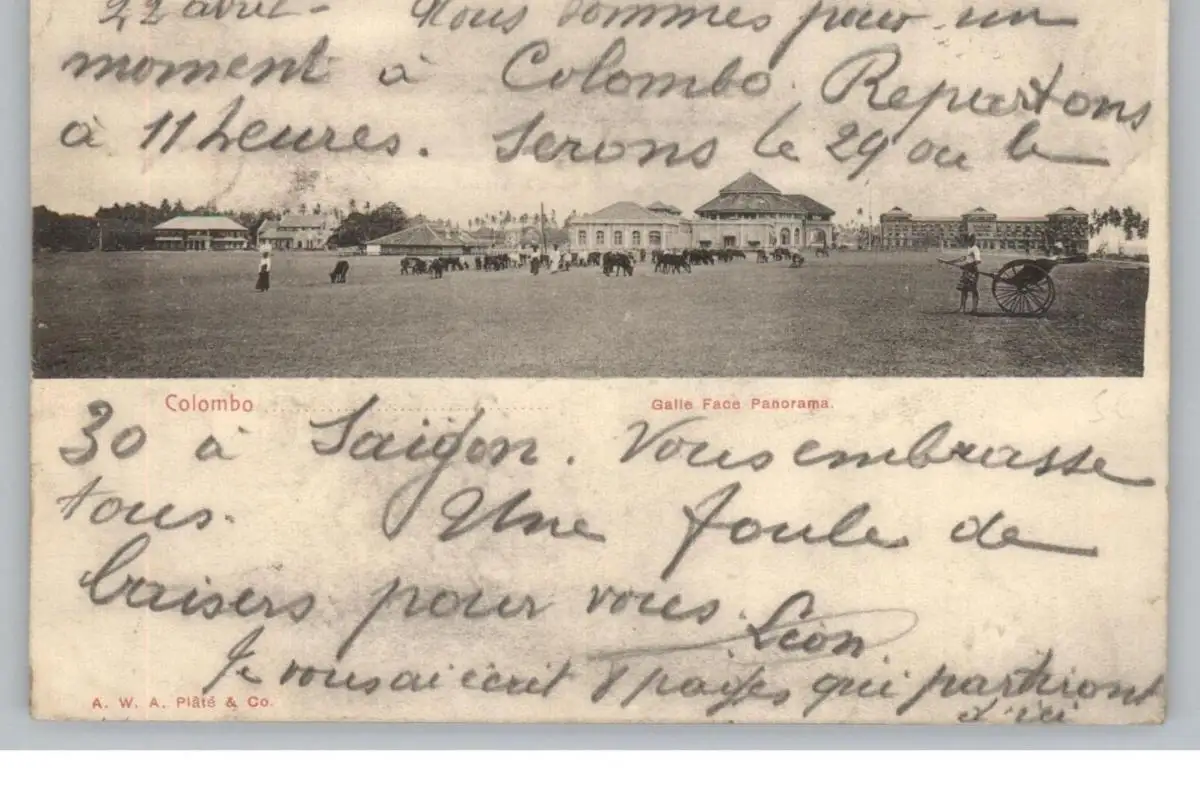 22 avril - Nous sommes pour un
moment à Colombo. Repartons
à 11 heures. Serons le 29 ou le
Colombo
Galle Face Panorama.
30 à Saigon. Vous embrasse
tous. Une foule de
baisers pour vous.
Léon
Je vous ai écrit 8 pages qui partiront
d'ici
A. W. A. Plâté & Co.